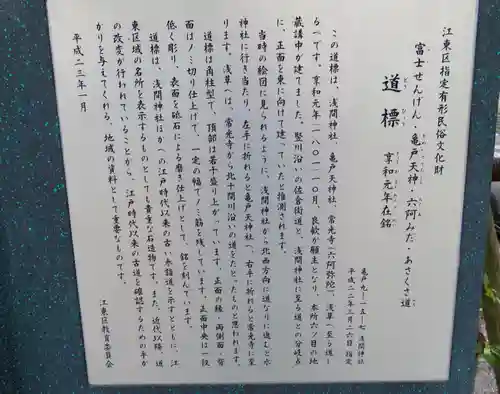 江東区指定有形民俗文化財
富士せんげん・亀戸天神・六阿みだ・あさくさ道
道標 享和元年在銘
どうひょう
きょうわ
亀戸九-一五-七 浅間神社
平成二二年三月二六日指定
この道標は、浅間神社、亀戸天神社、常光寺(六阿弥陀)、浅草へ至る道し
るべです。享和元年(一八〇一)一〇月、良歓が願主となり、本所六ツ目の地
蔵講中が建てました。竪川沿いの佐倉街道と、浅間神社に至る道との分岐点
に、正面を東に向けて建っていたと推測されます。
当時の絵図に見られるように、浅間神社から北西方向に道なりに進むと水
神社に行き当たり、左手に折れると亀戸天神社へ、右手に折れると常光寺に至
ります。浅草へは、常光寺から北十間川沿いの道をたどったものと思われます。
道標は角柱型で、頂部は若干盛り上がっています。正面の縁・両側面・背
面はノミ切り仕上げで、一定の幅でノミ筋を残しています。正面中央は一段
低く彫り、表面を砥石による磨き仕上げとして、銘を刻んでいます。
道標は、浅間神社ほかへの江戸時代以来の古い参詣道を示すとともに、江
東区域の名所を表示するものとしても貴重な石造物です。また、近代以降、道
の改変が行われていることから、江戸時代以来の古道を確認するための手が
かりを与えてくれる、地域の資料として重要なものです。
平成二三年一月
江東区教育委員会